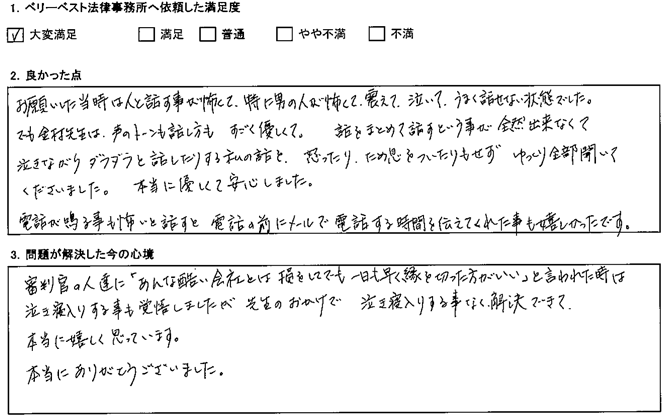 1. ベリーベスト法律事務所へ依頼した満足度
☑ 大変満足 □ 満足 □ 普通 □ やや不満 □ 不満
2. 良かった点
お願いした当時は人と話す事が怖くて、特に男の人が怖くて、震えて、泣いて、うまく話せない状態でした。
でも金村先生は、声のトーンも話し方も すごく優しくて。 話をまとめて話すという事が全然出来なくて
泣きながら ダラダラと話したりする私の話を、 怒ったり、ため息をついたりもせず ゆっくり全部聞いて
くださいました。 本当に優しくて安心しました。
電話が鳴る事も怖いと話すと 電話の前にメールで電話する時間を伝えてくれた事も嬉しかったです。
3. 問題が解決した今の心境
審判官の人達に「あんな酷い会社とは 損をしてでも 一日も早く縁を切った方がいい」と言われた時は
泣き寝入りする事も覚悟しましたが 先生のおかげで 泣き寝入りする事なく、解決できて、
本当に嬉しく思っています。
本当にありがとうございました。